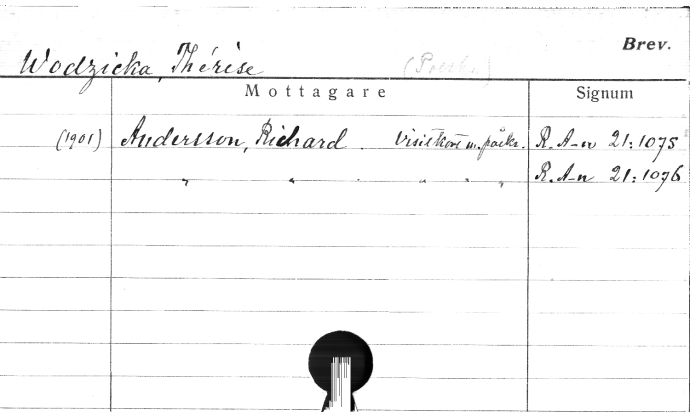 Brev.
Wodzicka, Thérèse
Mottagare Signum
(1901) Andersson, Richard. Visitkort m. påskr. R. A-n 21:1075
" " . " " " R. A-n 21:1076